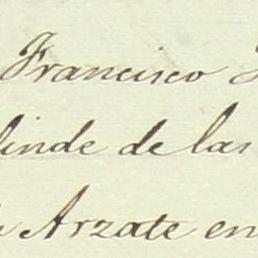 Francisco
linde de las
Arzate en